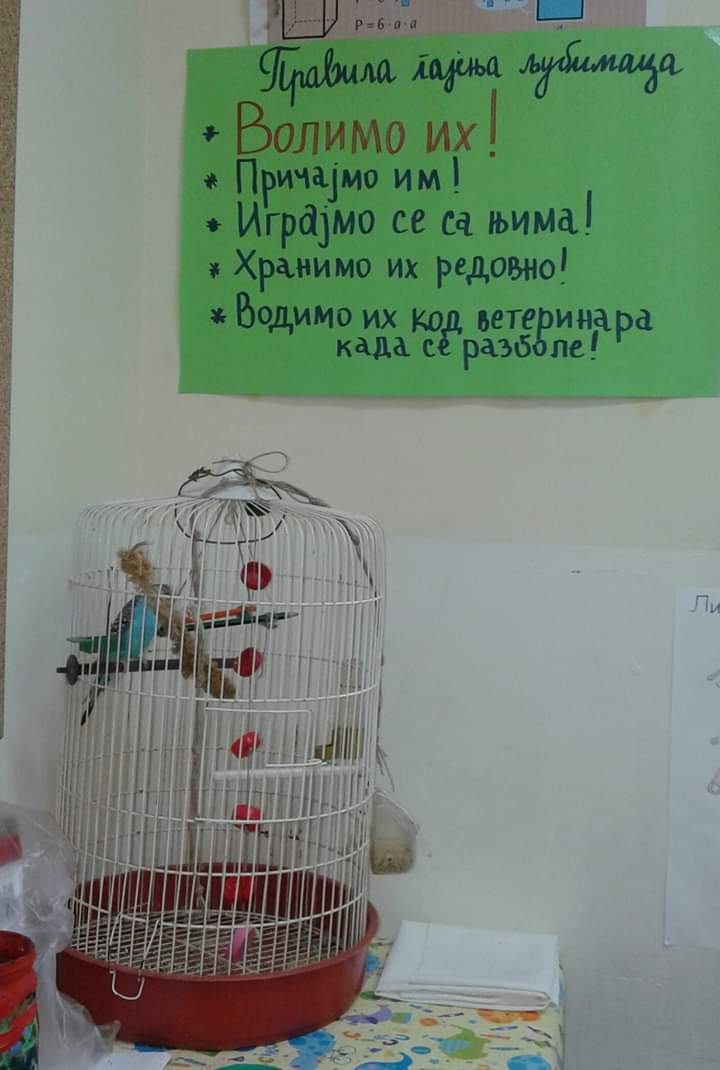 P=6·a·a
Правила гајења љубимаца
* Волимо их!
* Причајмо им!
* Играјмо се са њима!
* Хранимо их редовно!
* Водимо их код ветеринара
када се разболе!